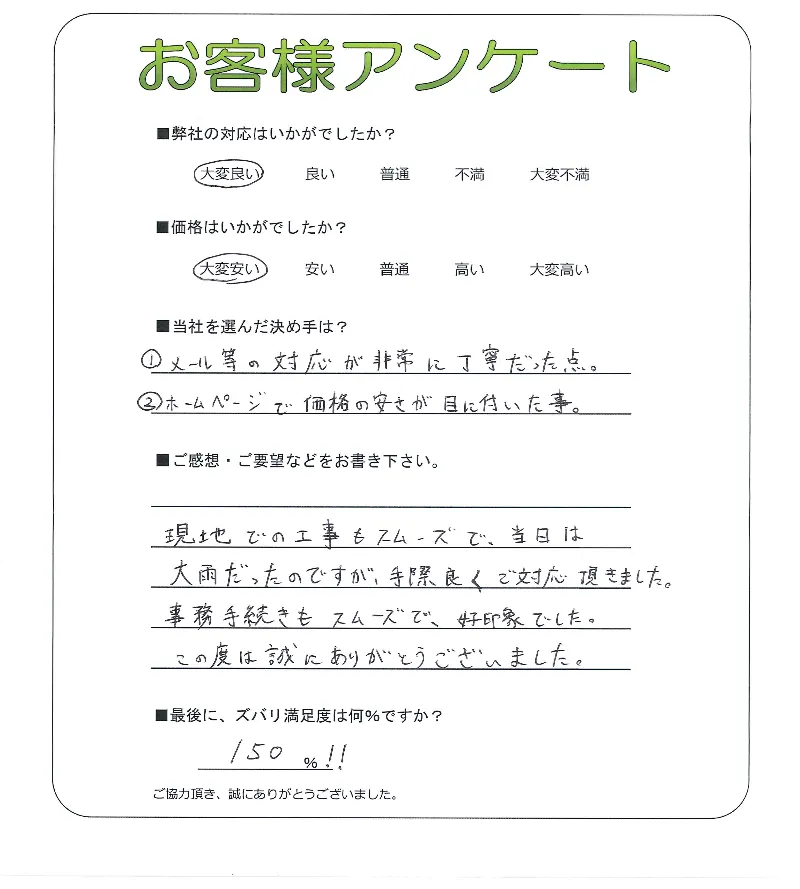 お客様アンケート
■弊社の対応はいかがでしたか？
大変良い 良い 普通 不満 大変不満
■価格はいかがでしたか？
大変安い 安い 普通 高い 大変高い
■当社を選んだ決め手は？
①メール等の対応が非常に丁寧だった点。
②ホームページで価格の安さが目に付いた事。
■ご感想・ご要望などをお書き下さい。
現地での工事もスムーズで、当日は
大雨だったのですが、手際良くご対応頂きました。
事務手続きもスムーズで、好印象でした。
この度は誠にありがとうございました。
■最後に、ズバリ満足度は何％ですか？
150％!!
ご協力頂き、誠にありがとうございました。